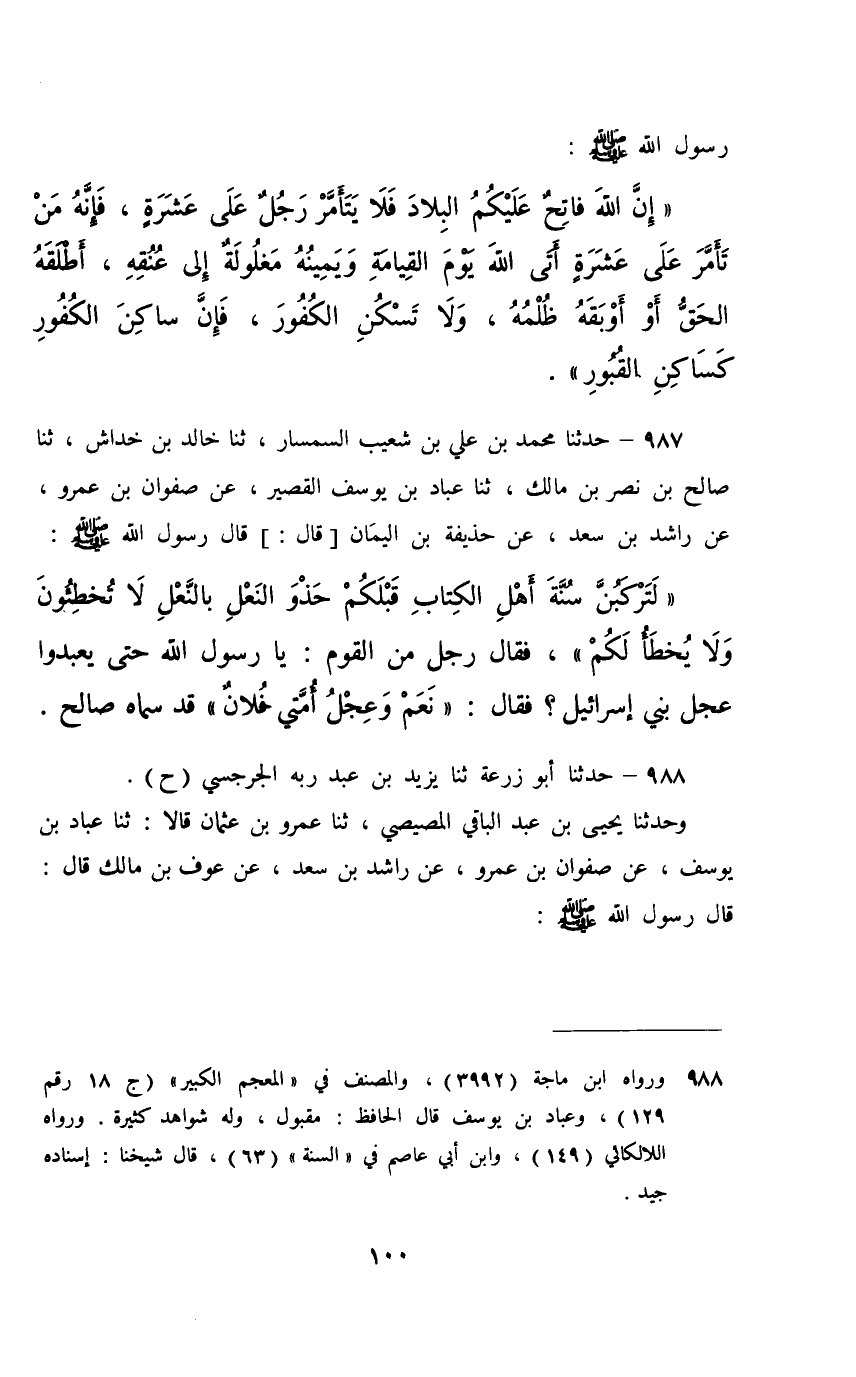 رسول الله ﷺ :
« إِنَّ اللهَ فاتِحٌ عَلَيْكُمُ البِلادَ فَلَا يَتَأَمَّرْ رَجُلٌ عَلَى عَشَرَةٍ ، فَإِنَّهُ مَنْ
تَأَمَّرَ عَلَى عَشَرَةٍ أَتَى اللهَ يَوْمَ القِيامَةِ وَيَمِينُهُ مَغلُولَةٌ إلى عُنُقِهِ ، أَطْلَقَهُ
الحَقُّ أَوْ أَوْبَقَهُ ظُلْمُهُ ، وَلَا تَسْكُنِ الكُفُورَ ، فَإِنَّ ساكِنَ الكُفُورِ
كَسَاكِنِ القُبُورِ» .
٩٨٧ – حدثنا محمد بن علي بن شعيب السمسار ، ثنا خالد بن خداش ، ثنا
صالح بن نصر بن مالك ، ثنا عباد بن يوسف القصير ، عن صفوان بن عمرو ،
عن راشد بن سعد ، عن حذيفة بن اليمَان [ قال : ] قال رسول الله ﷺ :
« لَتَرْكَبُنَّ سُنَّةَ أَهْلِ الكِتابِ قَبْلَكُمْ حَذْوَ النَعْلِ بالنَّعْلِ لَا تُخطِئُونَ
وَلَا يُخطَأُ لَكُمْ» ، فقال رجل من القوم : يا رسول الله حتى يعبدوا
عجل بني إسرائيل ؟ فقال : « نَعَمْ وَعِجْلُ أُمَّتي فُلانٌ» قد سماه صالح .
٩٨٨ – حدثنا أبو زرعة ثنا يزيد بن عبد ربه الجرجسي (ح) .
وحدثنا يحيى بن عبد الباقي المصيصي ، ثنا عمرو بن عثمان قالا : ثنا عباد بن
يوسف ، عن صفوان بن عمرو ، عن راشد بن سعد ، عن عوف بن مالك قال :
قال رسول الله ﷺ :
٩٨٨ ورواه ابن ماجة (٣٩٩٢) ، والمصنف في «المعجم الكبير» (ج ١٨ رقم
١٢٩) ، وعباد بن يوسف قال الحافظ : مقبول ، وله شواهد كثيرة . ورواه
اللالكائي (١٤٩) ، وابن أبي عاصم في «السنة» (٦٣) ، قال شيخنا : إسناده
جيد .
١٠٠